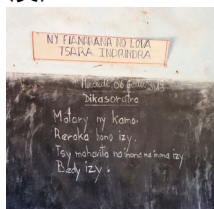 NY FIANARANA NO LOVA
TSARA INDRINDRA
Dikasoratra
Malary ny kamo.
Reraka hono izy.
Tsy maharita na inona na inona izy
Bedy izy.